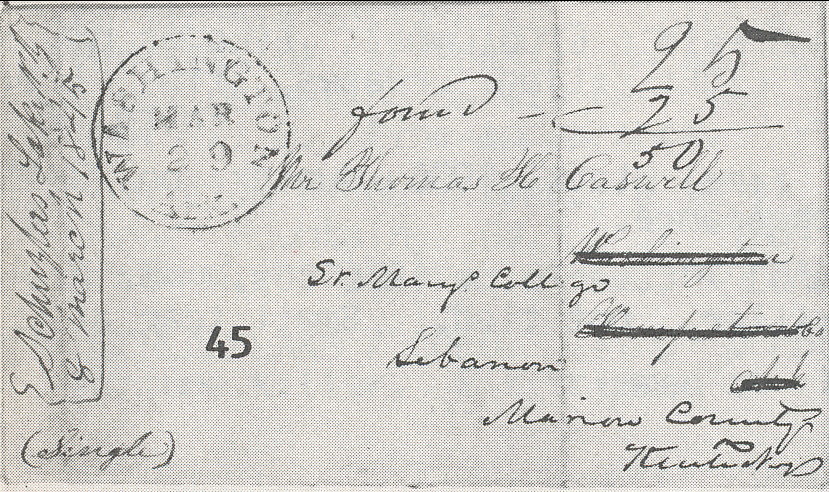 Schuylers Lake N.Y
8 March 1845
WASHINGTON
MAR
29
ARK.
25
forw'd - 25
50
Mr Thomas H Caswell
Washington
St. Mary's College
Hempstead Co
45
Lebanon
Ark
Marion County
Kentucky
(Single)